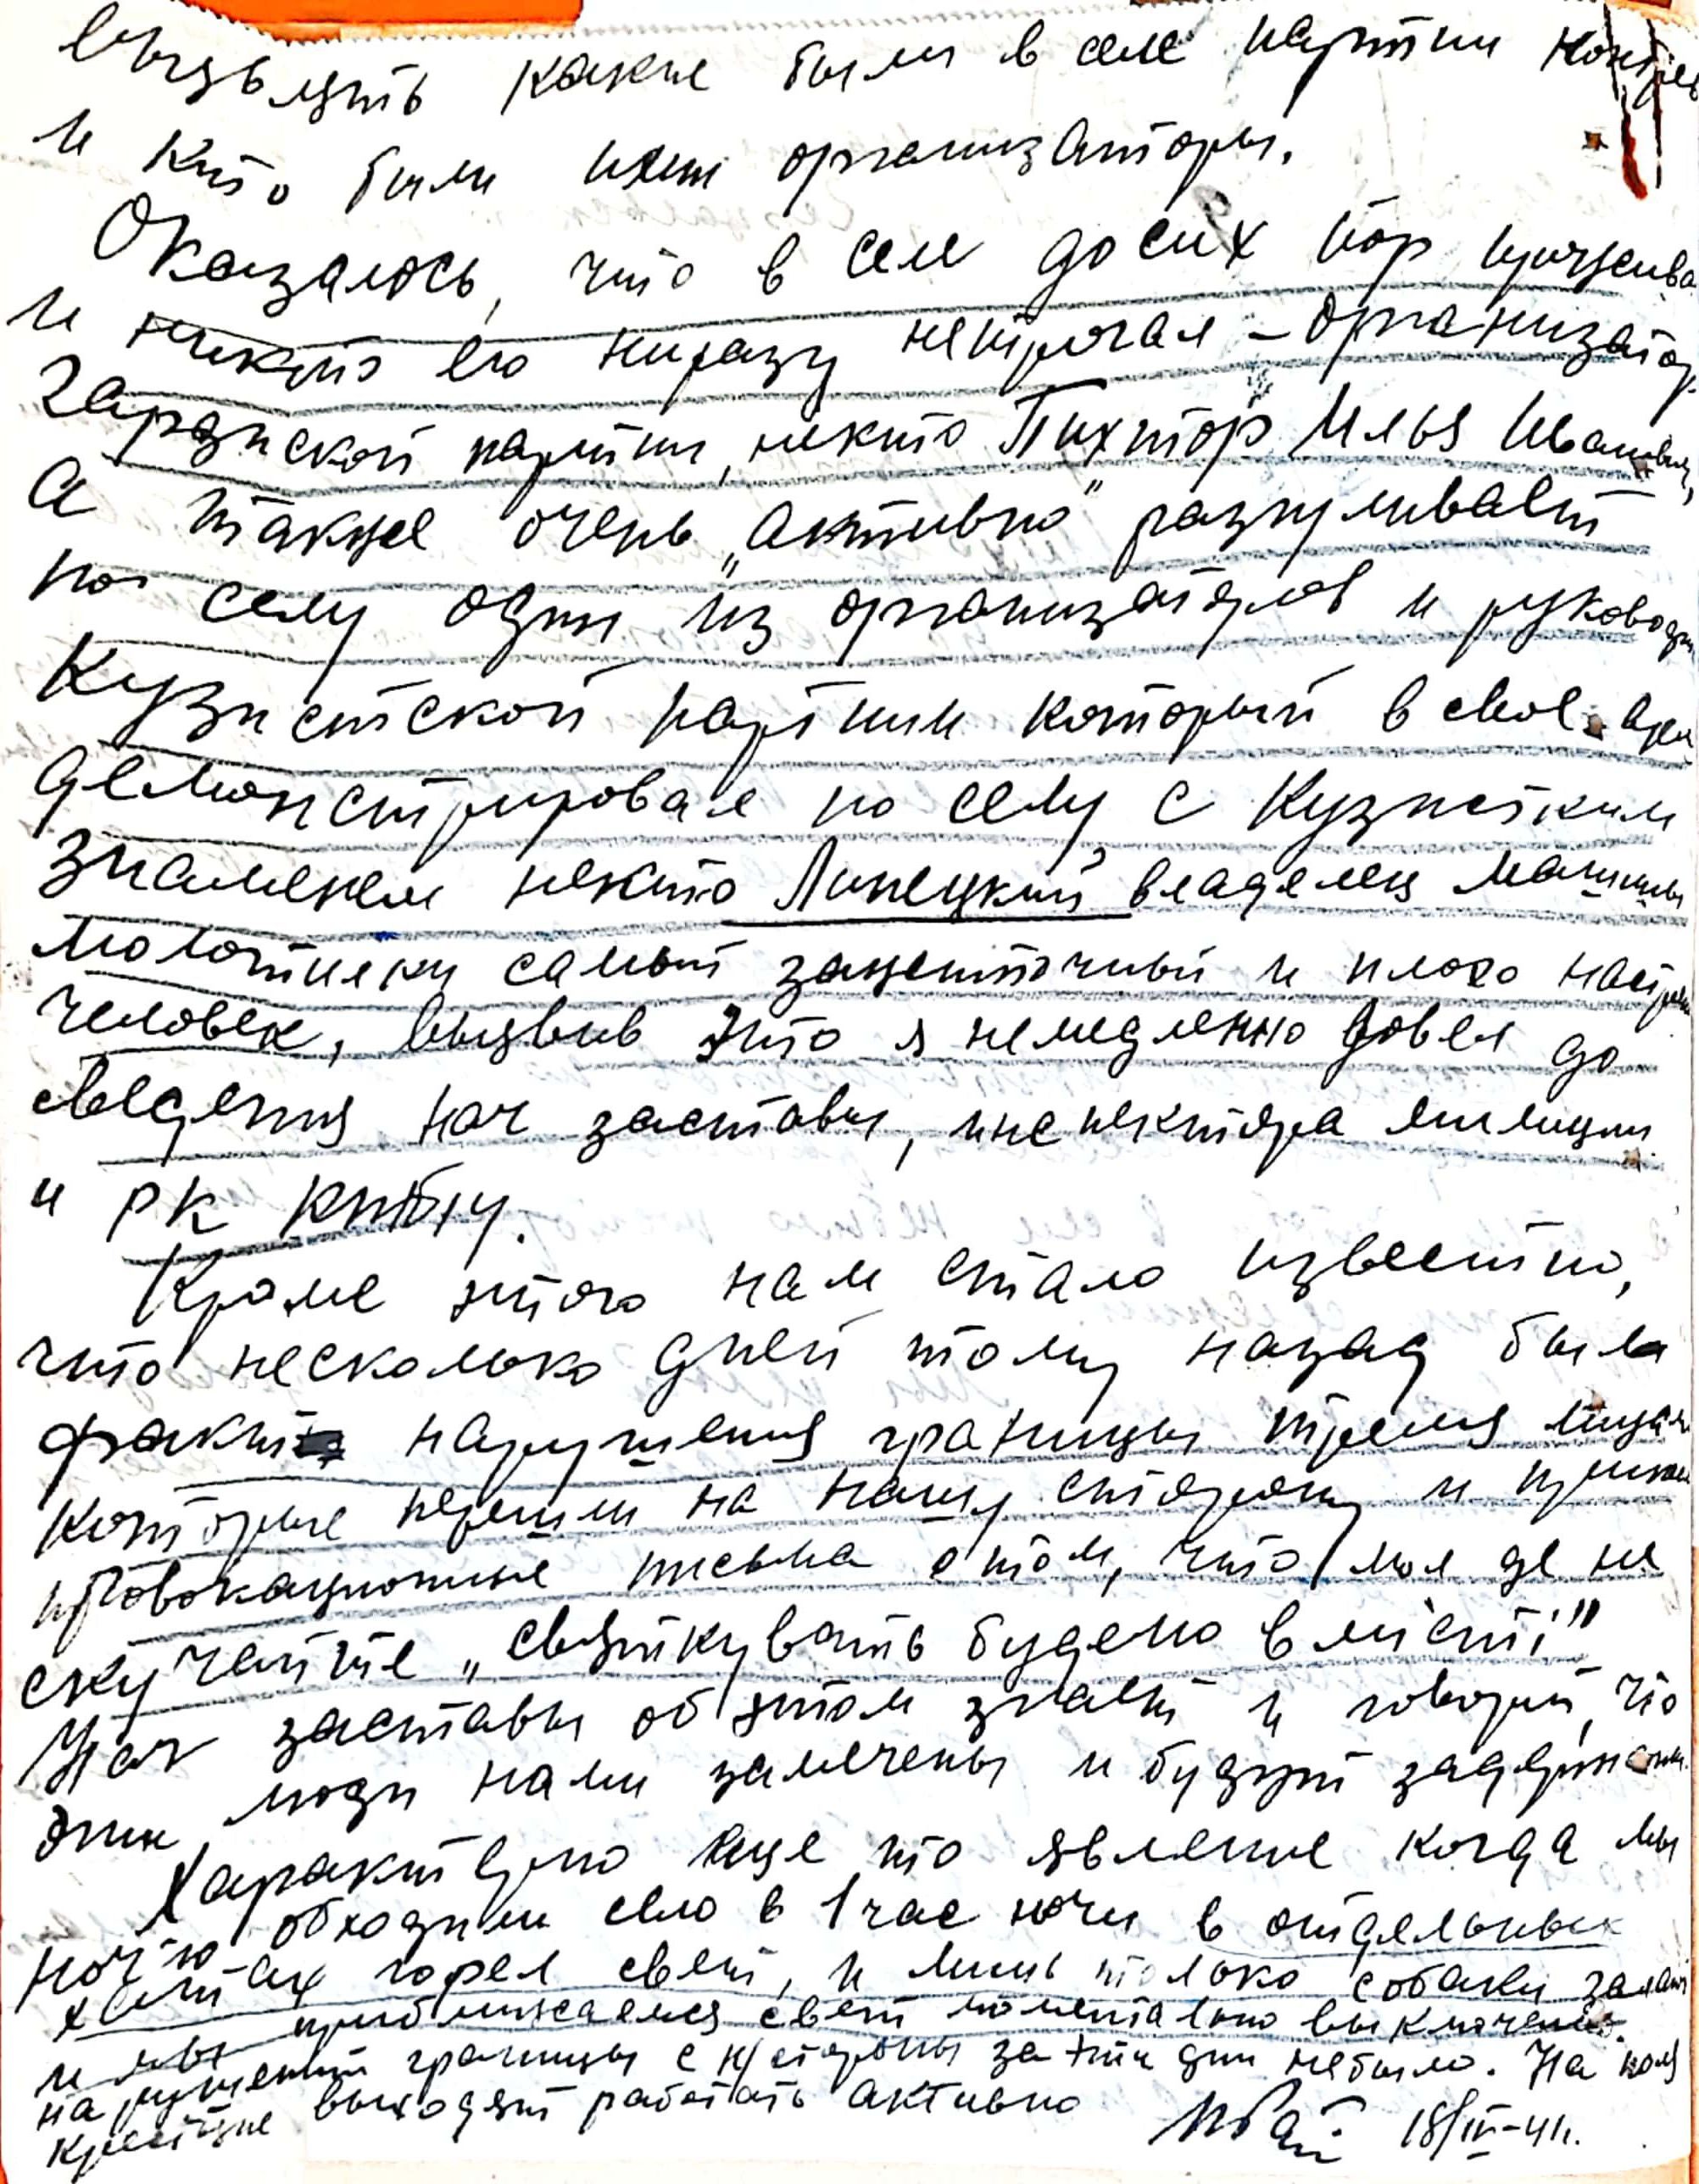 выявить какие были в селе партии
и кто были ихни организаторы.
Оказалось, что в селе до сих пор прожива
и никто его ниразу нетрогал – организатор
партии, некто Пихтор Илья Иванович,
а также очень „активно" разгуливает
по селу один из организаторов и руковод
Кузистской партии который в свое вре
демонстрировал по селу с Кузистским
знаменем некто Липецкий владелец машины
молотилки самый зажиточный и плохо настр
человек, выявив это я немедленно довел до
сведения нач заставы, инспектора милиции
и РК КП(б)У.
Кроме этого нам стало известно,
что несколько дней тому назад был
факт нарушения границы тремя лицам
которые перешли на нашу сторону и
провокационные письма о том, что мол де не
скучайте „святкувать будемо в місті"
Нач заставы об этом знает и говорит, что
эти люди нами замечены и будут задержаны.
Характерно еще то явление когда мы
ночью обходили село в 1 час ночи в отдельных
хатах горел свет, и лишь только собаки залают
и мы приближаемся свет моментально выключено.
нарушений границы с н/стороны за эти дни небыло. На
выходят работать активно 18/IV-41.